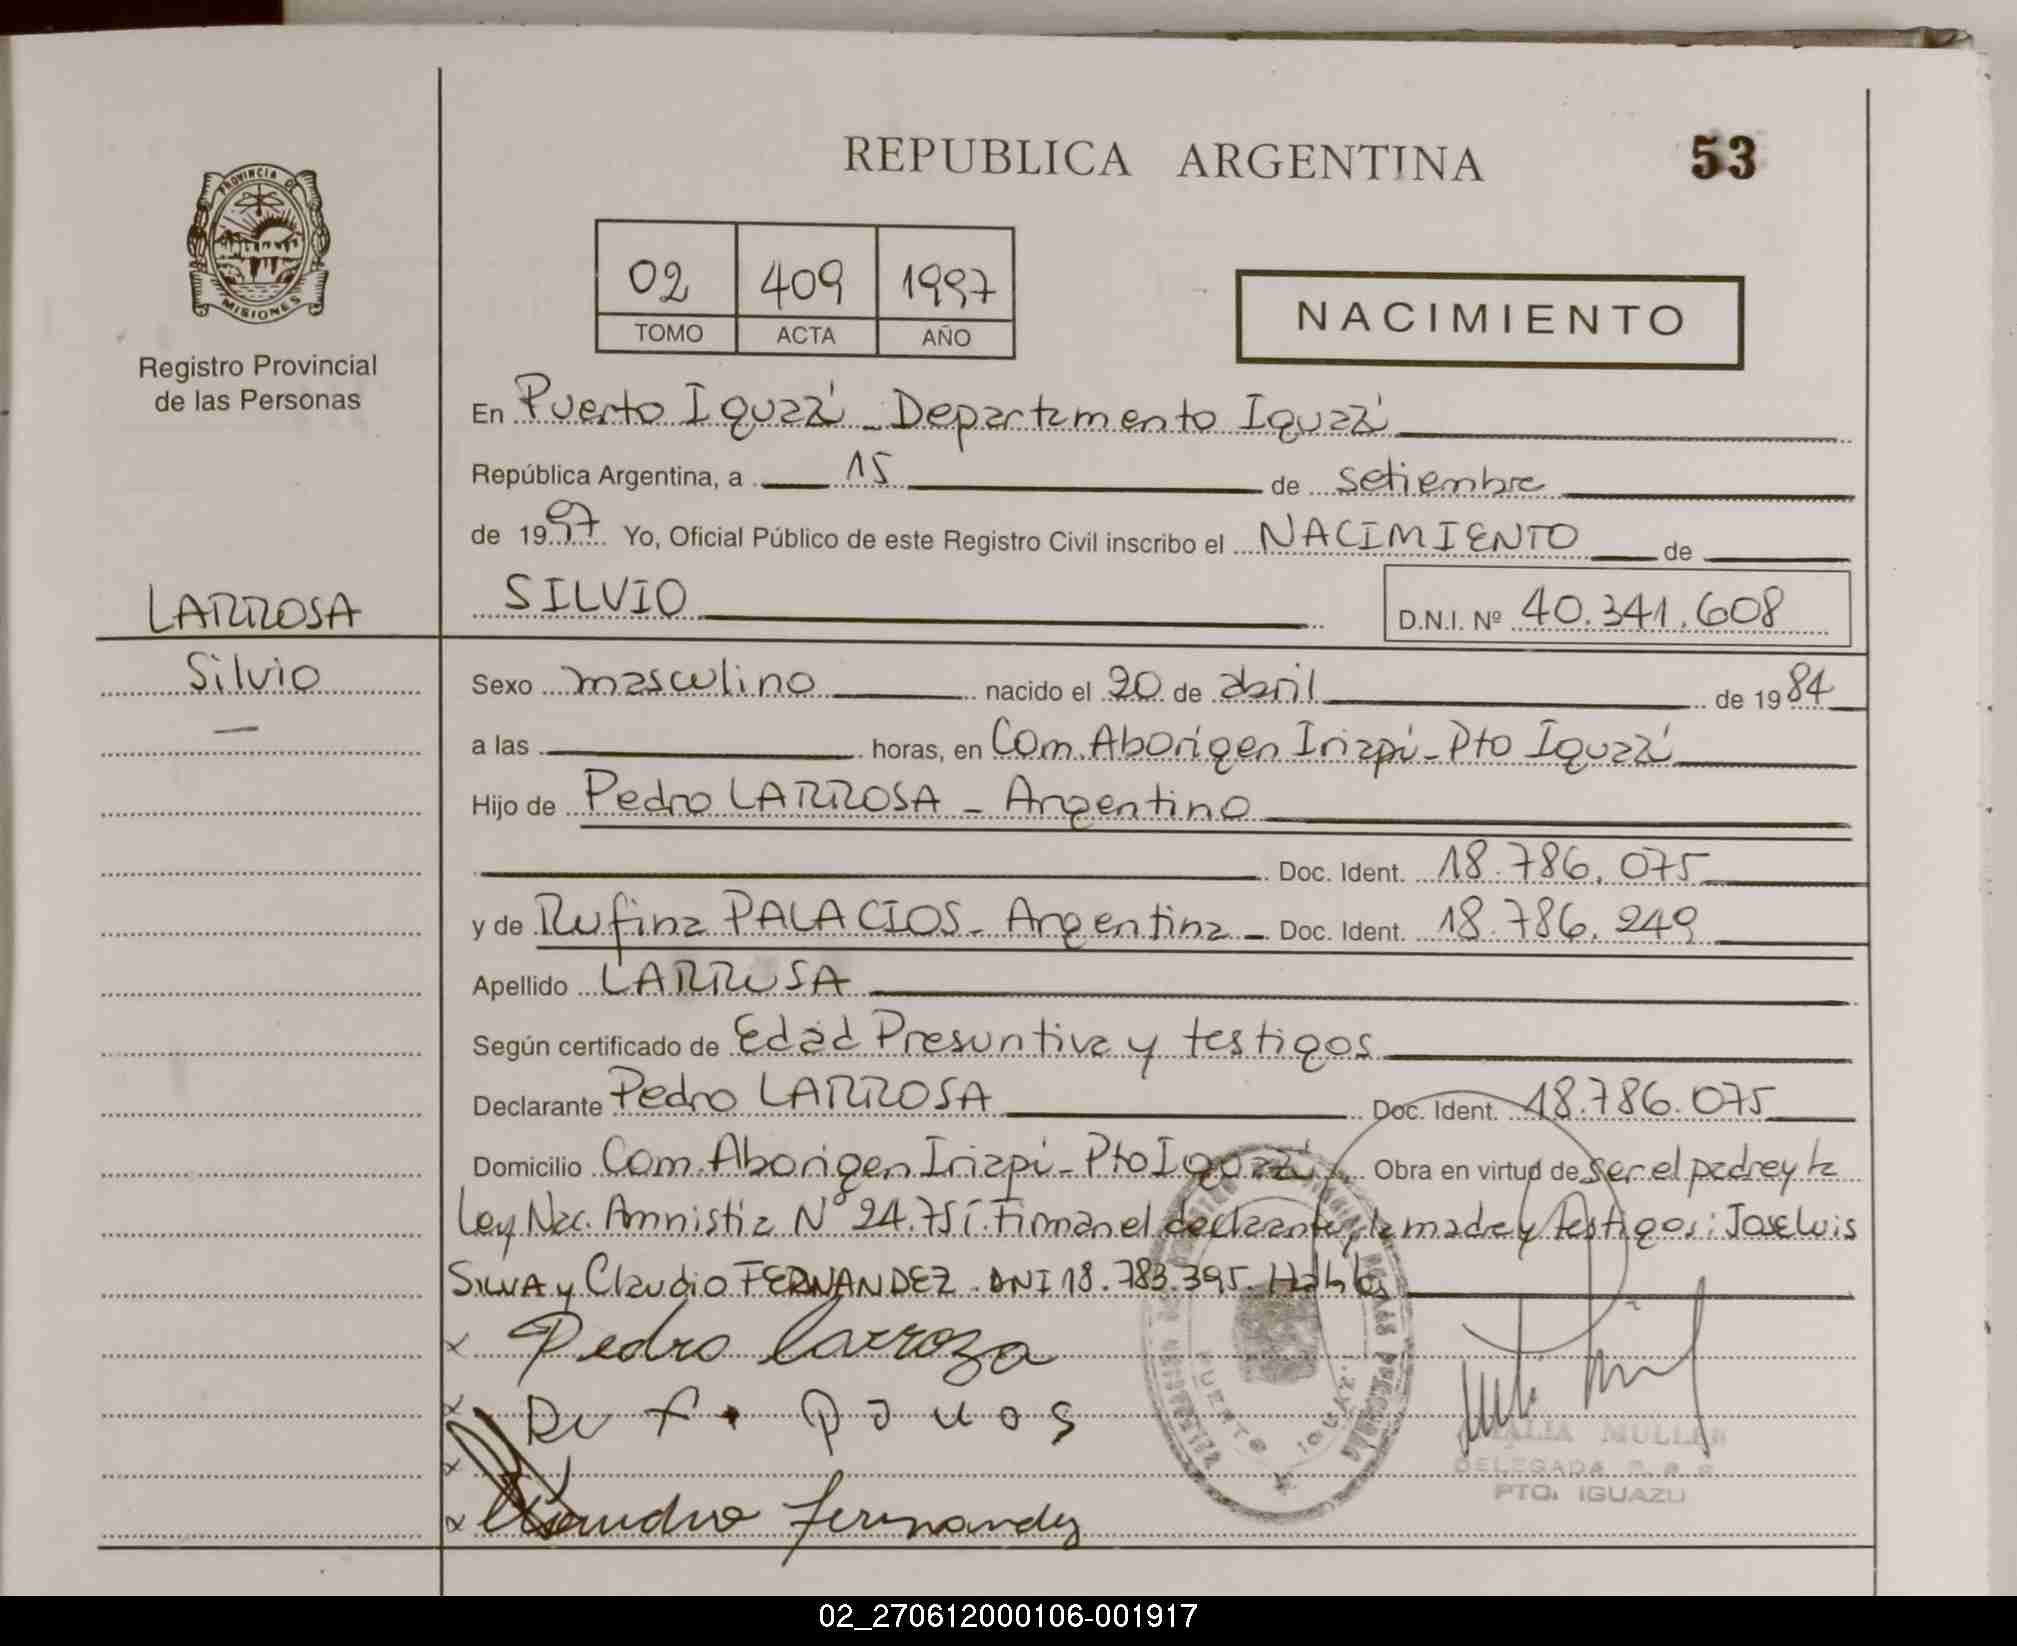 REPUBLICA ARGENTINA
53
PROVINCIA DE
MISIONES
Registro Provincial
de las Personas
02 409 1997
TOMO ACTA AÑO
NACIMIENTO
En Puerto Iguazú - Departamento Iguazú
República Argentina, a 15 de setiembre
de 1997 Yo, Oficial Público de este Registro Civil inscribo el NACIMIENTO de
LARROSA
SILVIO D.N.I. Nº 40.341.608
Silvio
Sexo masculino nacido el 20 de abril de 1984
a las horas, en Com. Aborigen Iriapú - Pto Iguazú
Hijo de Pedro LARROSA - Argentino
Doc. Ident. 18.786.075
y de Rufina PALACIOS - Argentina - Doc. Ident. 18.786.249
Apellido LARROSA
Según certificado de Edad Presuntiva y testigos
Declarante Pedro LARROSA Doc. Ident. 18.786.075
Domicilio Com. Aborigen Iriapú - Pto Iguazú Obra en virtud de ser el padre y la
Ley Nac. Amnistia Nº 24.751. Firman el declarante, la madre y testigos: Jose Luis
SILVA y Claudio FERNANDEZ. DNI 18.783.395.
x Pedro Larroza
x
x
x Claudio Fernandez
PUERTO IGUAZU
MULLER
DELEGADA
PTO. IGUAZU
02_270612000106-001917